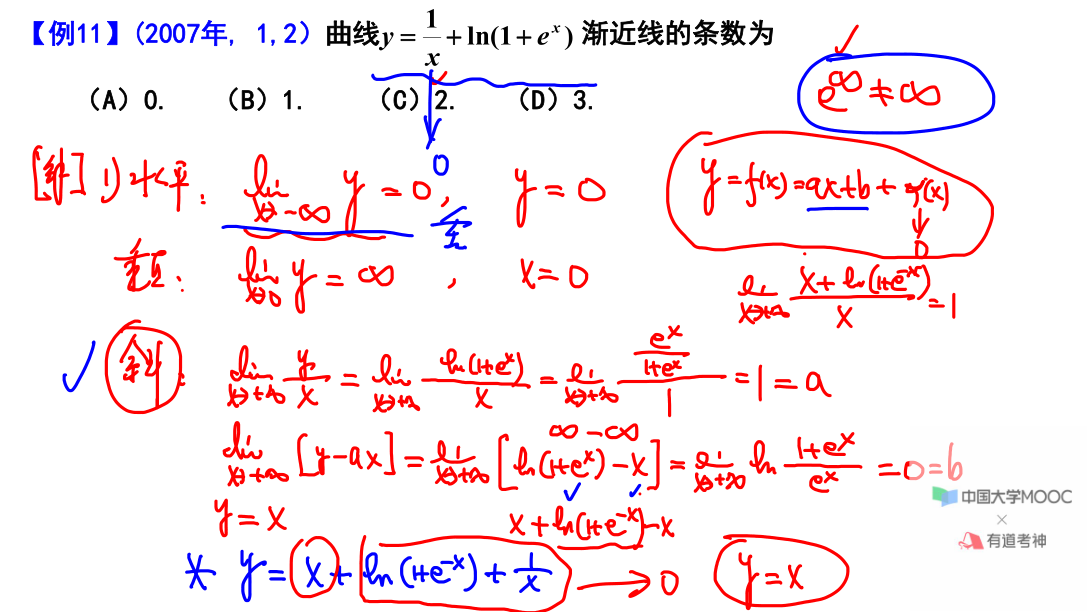 【例11】(2007年, 1,2) 曲线y = 1/x + ln(1 + e^x) 渐近线的条数为
(A) 0. (B) 1. (C) 2. (D) 3.
e^∞ ≠ ∞
0
[解] 1) 水平: lim x→-∞ y = 0, y = 0
y = f(x) = ax+b + α(x)
↓
0
垂直: lim x→0 y = ∞, x = 0
lim x→+∞ (x + ln(1+e^-x))/x = 1
✓ 斜: lim x→+∞ y/x = lim x→+∞ ln(1+e^x)/x = lim x→+∞ (e^x/(1+e^x))/1 = 1 = a
∞ - ∞
lim x→+∞ [y-ax] = lim x→+∞ [ln(1+e^x) - x] = lim x→+∞ ln (1+e^x)/e^x = 0 = b
中国大学MOOC
×
有道考神
y = x
x + ln(1+e^-x) - x
* y = x + ln(1+e^-x) + 1/x → 0 y = x